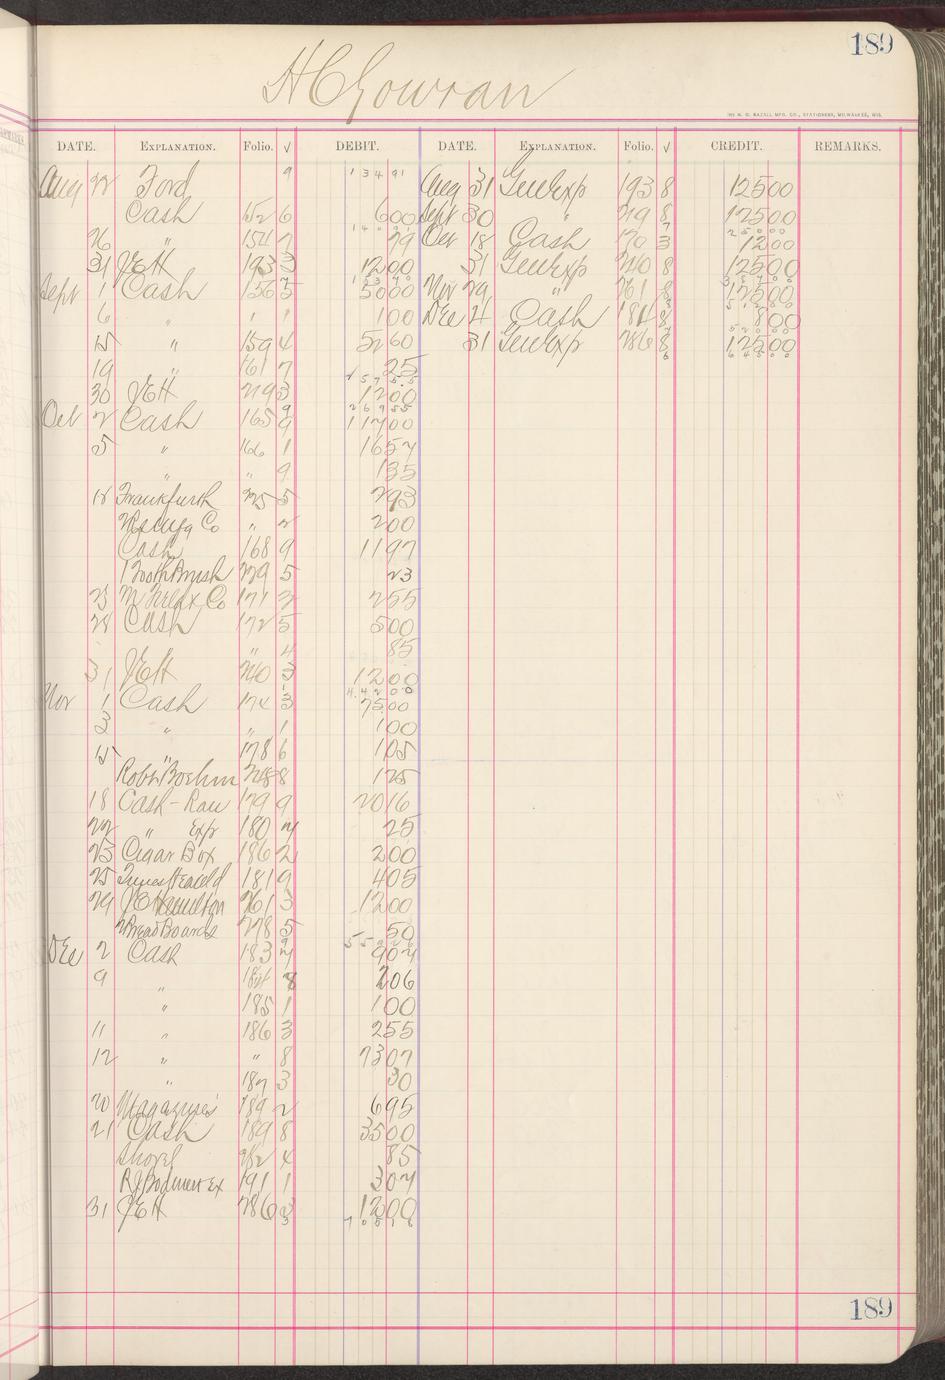 189
H C Gowran
DATE. EXPLANATION. Folio. √ DEBIT. DATE. EXPLANATION. Folio. √ CREDIT. REMARKS.
Aug 22 Ford 9 134 91 Aug 31 Gen Exp 193 8 125 00
Cash 152 6 6 00 Sept 30 " 219 8 125 00
26 " 154 2 79 Oct 18 Cash 170 3 12 00
31 JEH 193 3 12 00 31 Gen Exp 240 8 125 00
Sept 1 Cash 156 5 50 00 Nov 29 " 261 8 125 00
6 " " " 1 00 Dec 4 Cash 184 8 8 00
15 " 159 4 52 60 31 Gen Exp 286 8 125 00
19 " 161 7 25
30 JEH 219 3 12 00
Oct 2 Cash 165 9 117 00
5 " 166 1 16 57
" " 9 1 35
12 Frankfurth 225 5 2 93
" 2 2 00
Cash 168 9 11 97
1 Tooth Brush 229 5 23
23 171 2 2 55
28 Cash 172 5 5 00
" " 4 85
31 JEH 240 3 12 00
442 00
Nov 1 Cash 174 3 75 00
3 " " 1 1 00
15 " 178 6 1 05
Robt Boehm 248 8 1 25
18 Cash - Rau 179 9 20 16
22 " Exp 180 7 25
23 Cigar Box 186 2 2 00
25 181 9 4 05
29 JE Hamilton 261 3 12 00
2 Bread Boards 278 5 50
Dec 2 Cash 183 7 9 07
9 " 184 8 2 06
" 185 1 1 00
11 " 186 3 2 55
12 " " 8 73 07
" 187 3 30
20 Magazines 189 2 6 95
21 Cash 189 8 35 00
Shovel 282 4 85
191 1 3 07
31 JEH 286 3 12 00
189